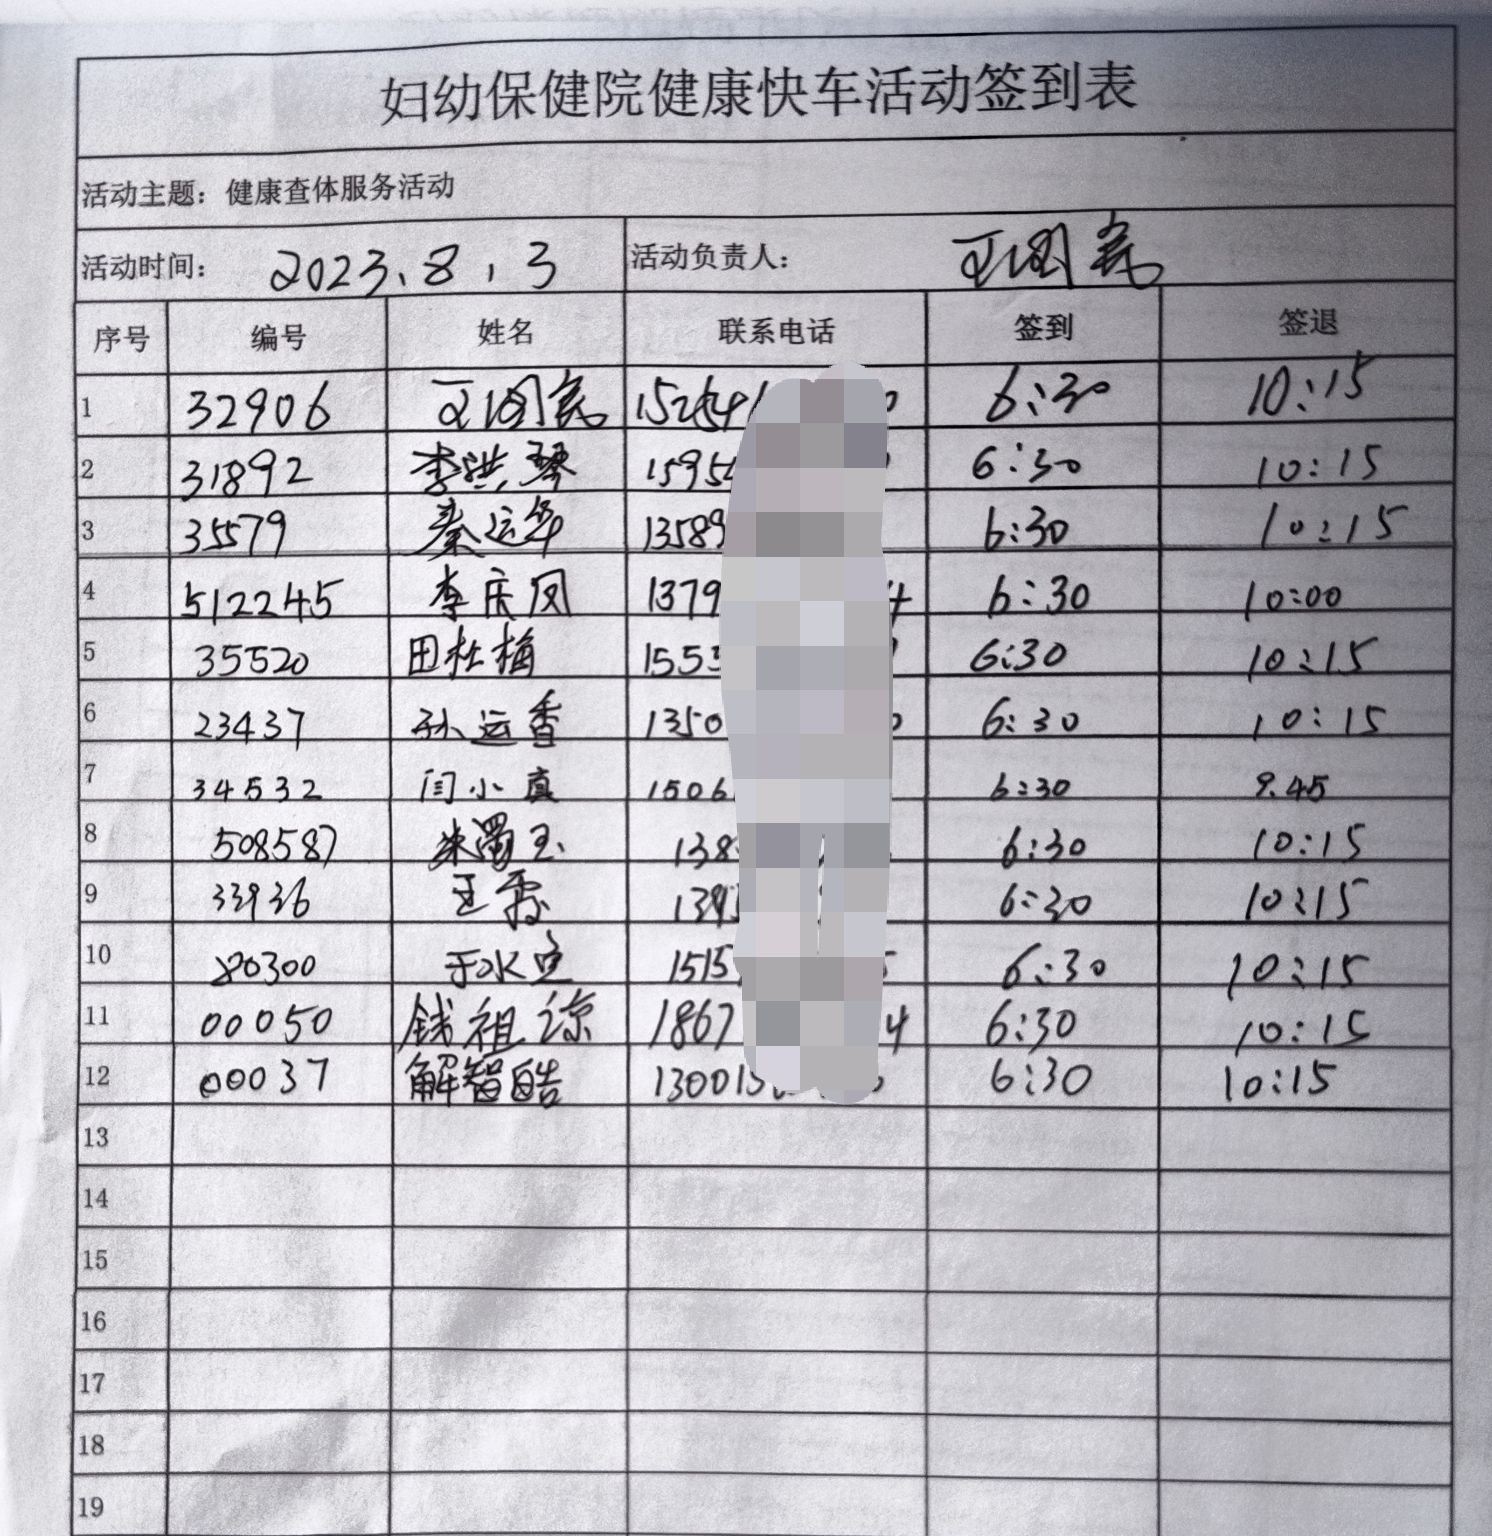 妇幼保健院健康快车活动签到表
活动主题：健康查体服务活动
活动时间： 2023.8.3 活动负责人：
序号 编号 姓名 联系电话 签到 签退
1 32906 6:30 10:15
2 31892 李洪琴 1595 6:30 10:15
3 35579 秦运华 13589 6:30 10:15
4 512245 李庆凤 1379 4 6:30 10:00
5 35520 田杜梅 155 6:30 10:15
6 23437 孙运香 1350 6:30 10:15
7 34532 闫小真 1506 6:30 9.45
8 508587 朱 玉 138 6:30 10:15
9 33936 王霞 139 6:30 10:15
10 80300 于水 1515 6:30 10:15
11 00050 钱祖谅 1867 4 6:30 10:15
12 00037 解智皓 130015 6:30 10:15
13
14
15
16
17
18
19